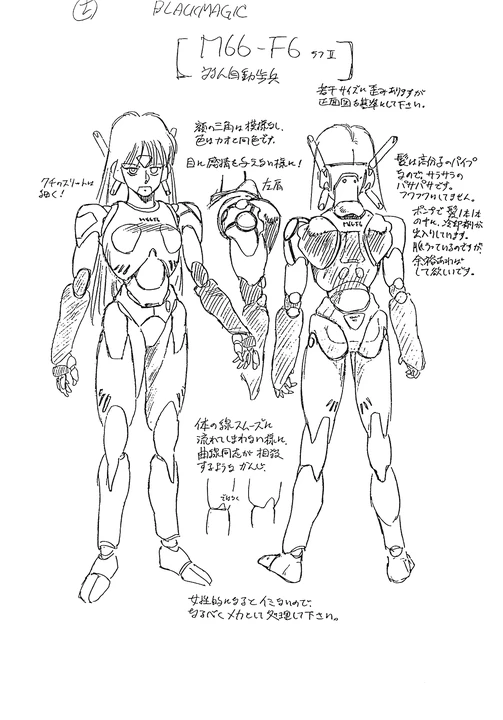 ① BLACKMAGIC
M66-F6 ラフⅡ
対人自動歩兵
若干サイズに歪みありますが
正面図を基準にして下さい。
額の三角は模様なし、
色はカオと同色です。
目に感情を与えない様に!
クチのスリートは
細く!
左肩
髪は高分子のパイプ
なので、サラサラの
バサバサです。
フワフワしてません。
ポンプで髪1本1本
の中に、冷却剤が
出入りしています。
脈うっているのですが、
余裕あれば
して欲しいです。
体の線スムーズに
流れてしまわない様に、
曲線同志が相殺
するような かんじ
ではなく
女性的になると イミないので、
なるべくメカとして処理して下さい。